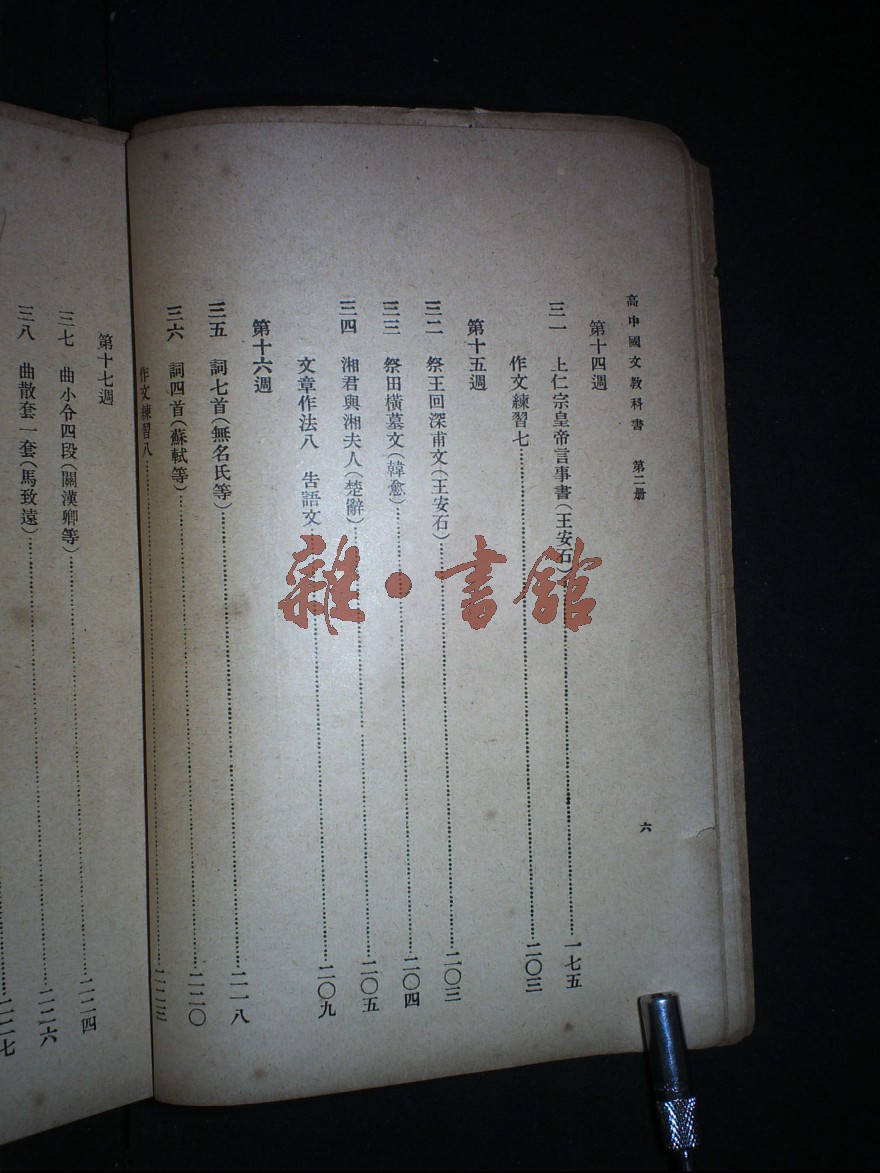 高中國文教科書　第二册
六
第十四週
三一　上仁宗皇帝言事書（王安石）……一七五
作文練習七……二〇三
第十五週
三二　祭王回深甫文（王安石）……二〇三
三三　祭田橫墓文（韓愈）……二〇四
三四　湘君與湘夫人（楚辭）……二〇五
文章作法八　告語文……二〇九
第十六週
三五　詞七首（無名氏等）……二一八
三六　詞四首（蘇軾等）……二二〇
作文練習八……二二三
第十七週
三七　曲小令四段（關漢卿等）……二二四
三八　曲散套一套（馬致遠）……二二六
……二二七
雜·書館